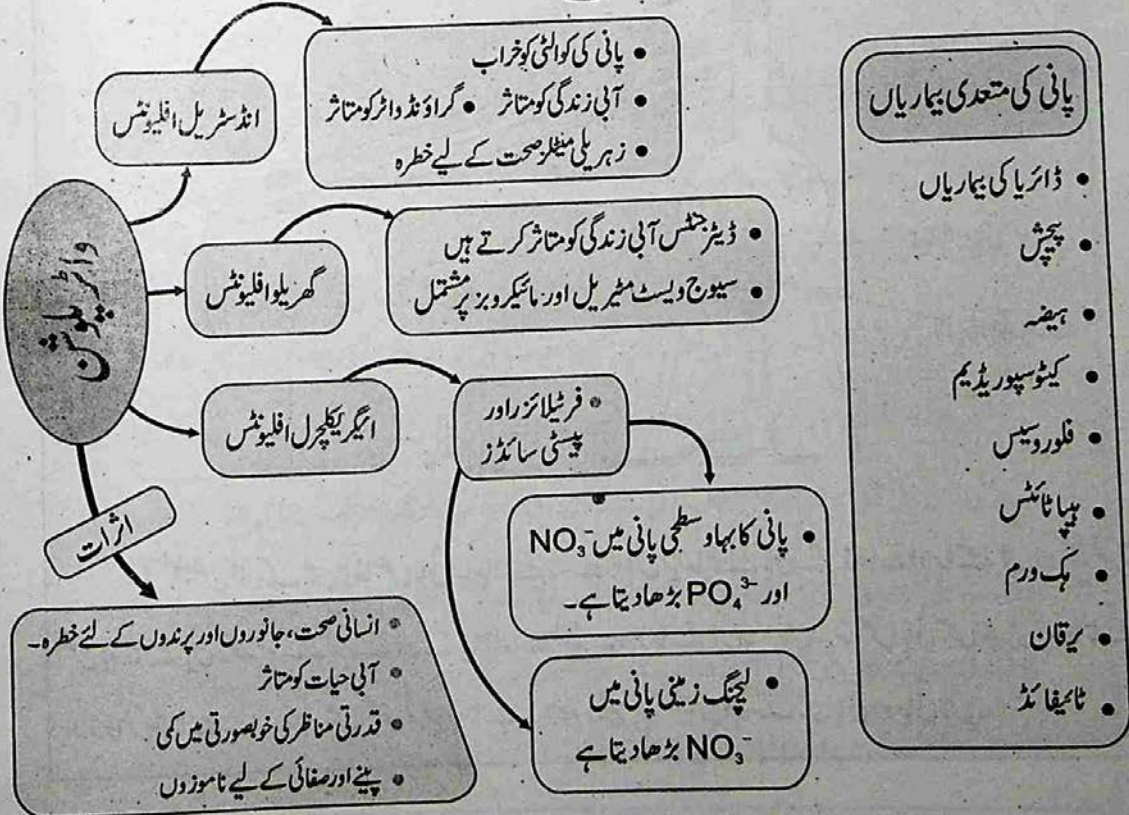 • پانی کی کوالٹی کو خراب
• آبی زندگی کو متاثر • گراؤنڈ واٹر کو متاثر
• زہریلی میٹلز صحت کے لیے خطرہ
انڈسٹریل افلیونٹس
واٹر پلوشن
گھریلو افلیونٹس
• ڈیٹرجنٹس آبی زندگی کو متاثر کرتے ہیں
• سیوج ویسٹ مٹیریل اور مائیکروبز پر مشتمل
ایگریکلچرل افلیونٹس
• فرٹیلائزر اور
پیسٹی سائڈز
• پانی کا بہاو سطحی پانی میں NO₃⁻
اور PO₄³⁻ بڑھا دیتا ہے۔
• لیچنگ زمینی پانی میں
NO₃⁻ بڑھا دیتا ہے
اثرات
• انسانی صحت، جانوروں اور پرندوں کے لئے خطرہ۔
• آبی حیات کو متاثر
• قدرتی مناظر کی خوبصورتی میں کمی
• پینے اور صفائی کے لیے ناموزوں
پانی کی متعدی بیماریاں
• ڈائریا کی بیماریاں
• پیچش
• ہیضہ
• کیٹوسپوریڈیم
• فلوروسیس
• ہیپاٹائٹس
• ہک ورم
• یرقان
• ٹائیفائڈ